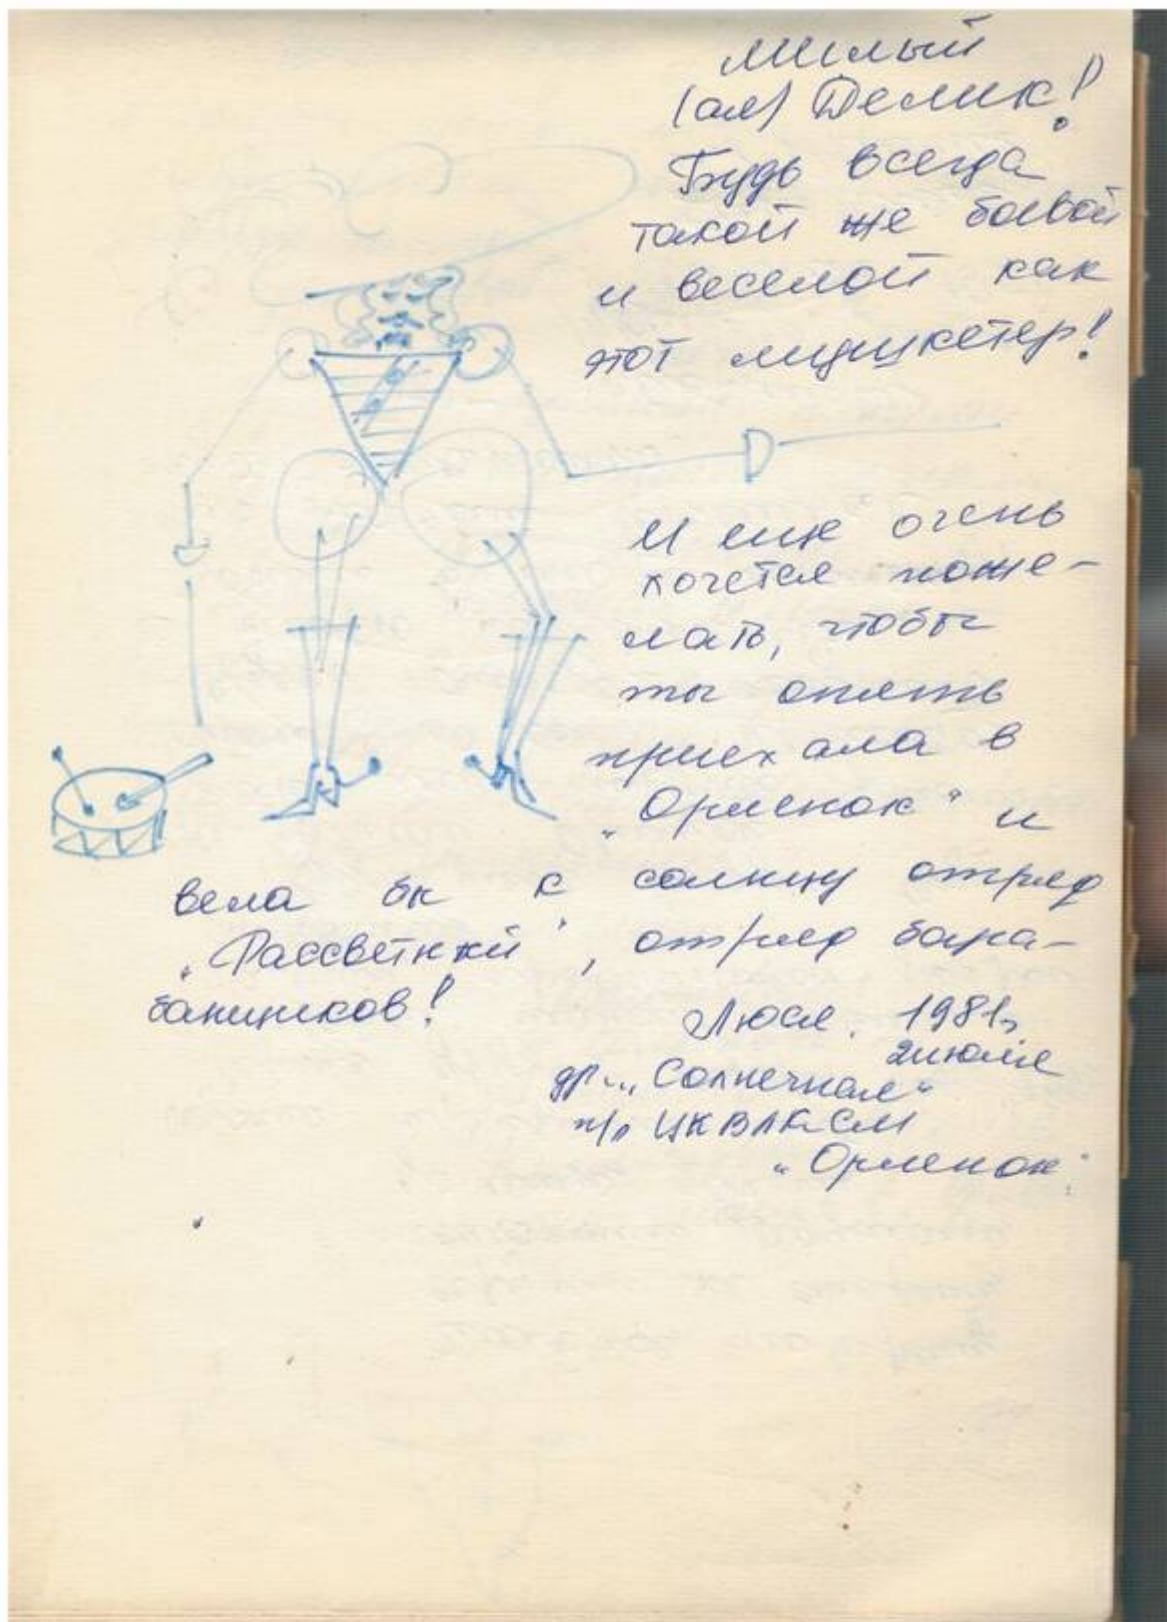 милый
(ая) Демик!
Будь всегда
такой же боевой
и веселой как
этот мушкетер!
И еще очень
хочется поже-
лать, чтобы
ты опять
приехала в
"Орленок" и
вела бы к солнцу отряд
"Рассветный", отряд бара-
банщиков!
Люся. 1981г.
2 июля
др. "Солнечная"
п/л ЦК ВЛКСМ
"Орленок".